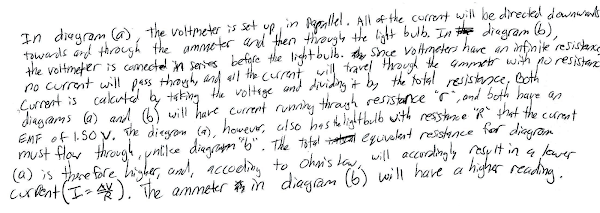 In diagram (a), the voltmeter is set up in parallel. All of the current will be directed downwards
towards and through the ammeter and then through the light bulb. In diagram (b),
the voltmeter is connected in series before the lightbulb. Since voltmeters have an infinite resistance
no current will pass through, and all the current will travel through the ammeter with no resistance.
Current is calculated by taking the voltage and dividing it by the total resistance. Both
diagrams (a) and (b) will have current running through resistance "r", and both have an
EMF of 1.50 V. The diagram (a), however, also has the lightbulb with resistance "R" that the current
must flow through, unlike diagram "b". The total equivalent resistance for diagram
(a) is therefore higher, and, according to Ohm's law, will accordingly result in a lower
current (I = ΔV/R). The ammeter in diagram (b) will have a higher reading.